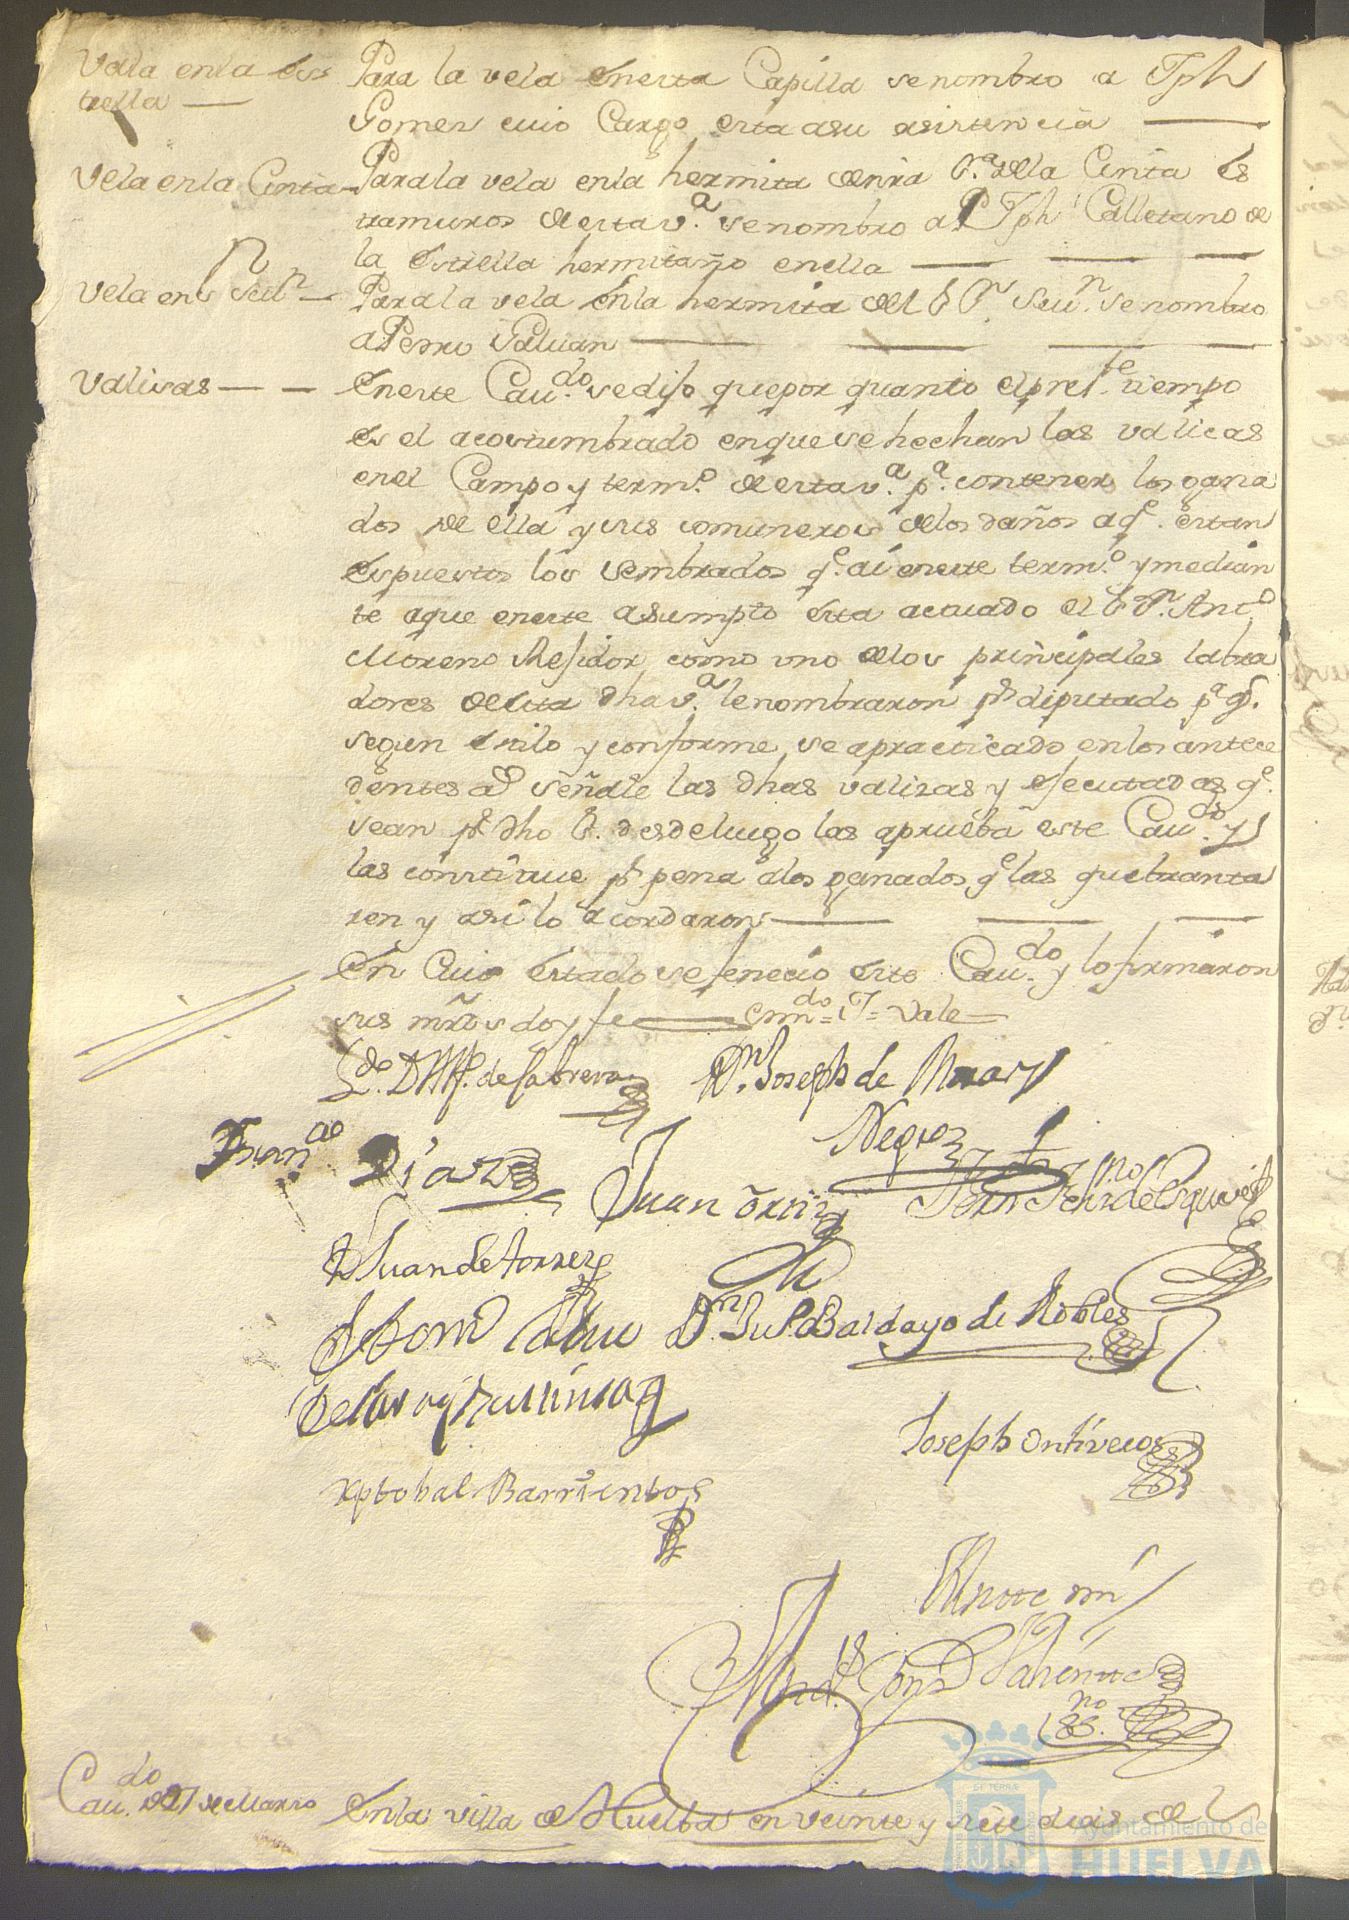 Vela en la Es
trella —
Para la vela en esta Capilla se nombro a Jph
Gomes cuio Cargo esta a su asistencia —
Vela en la Cinta —
Para la vela en la hermita de nra Sra. de la Cinta es
tramuros de esta va. se nombro a Jph Calletano de
la Estrella hermitaño en ella —
Vela en Sn Seun —
Para la vela en la hermita del Sr Sn. Seun. se nombro
a Pedro Galuan —
Valisas —
En este Caudo. se dijo que por quanto el preste. tiempo
es el acostumbrado en que se hechan las valicas
en el Campo y termo. de esta va. pa. contener los gana
dos de ella y sus comuneros de los daños a qe. estan
espuestos los sembrados qe. ai en este termo. y median
te a que en este asumpto esta actuado el Sr. Anto.
Moreno Rejidor como uno de los prinsipales labra
dores de esta dha va. le nombraron pr diputado pa qe.
segun estilo y conforme se a practicado en los antece
dentes as señale las dhas valizas y ejecutadas qe.
sean pr dho Sr. desde luego las aprueba este Caudo. y
las constitue pr pena a los ganados qe las quebranta
ren y asi lo acordaron —
En cuio estado se fenecio este Caudo. y lo firmaron
sus mrds doy fe — enmdo = J = Vale —
Ldo. D Ml. de Cabrera
Dn. Joseph de Mora y
Negro
Franco. Diaz
Juan ortiz
Dn Juan de torres
Dn. Ju P. Baldayo de Robles
Joseph ontiveros
Xptobal Barrientos
Ante mi
Caudo. de 27 de Marzo
En la villa de Huelba en veinte y siete dias de
Ayuntamiento de
HUELVA